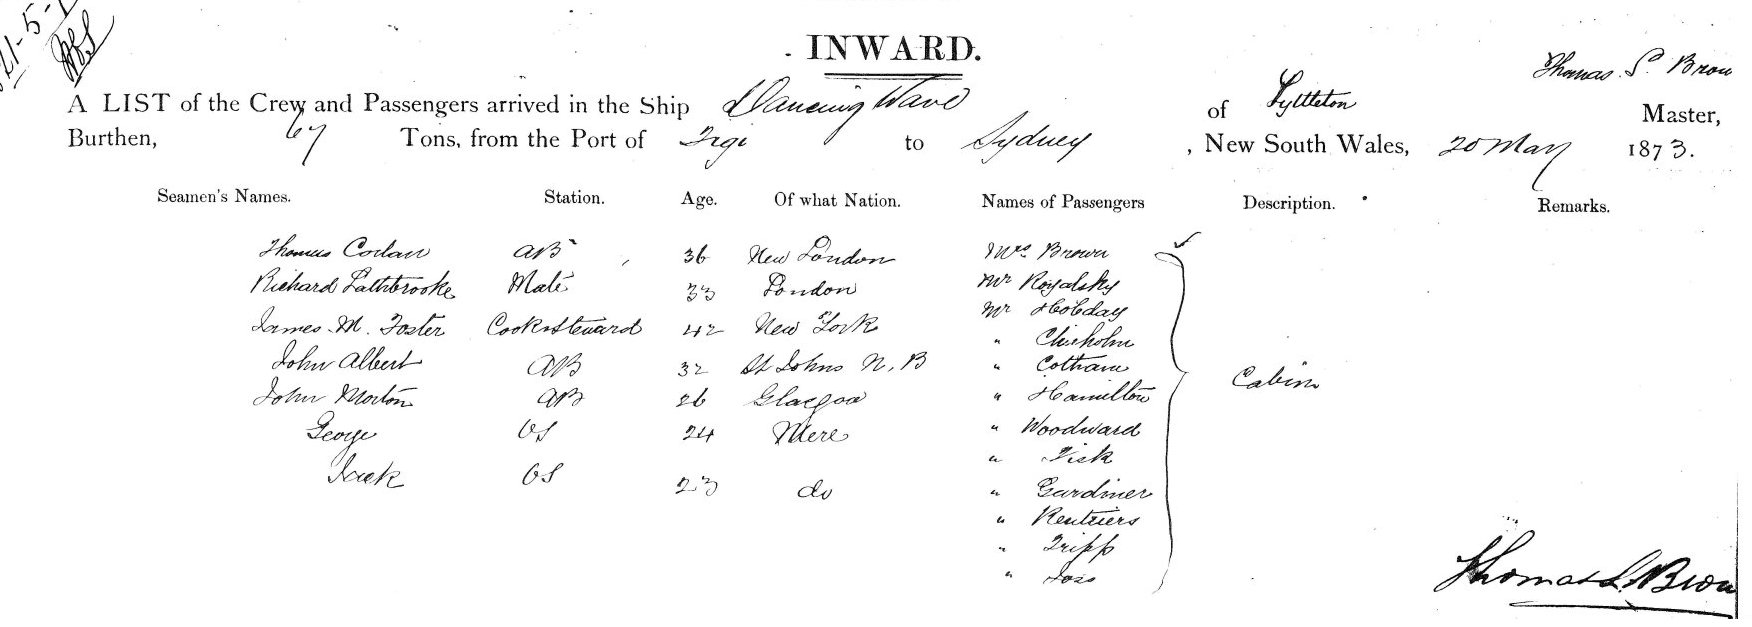 21-5-
INWARD.
Thomas S. Brow
A LIST of the Crew and Passengers arrived in the Ship Dancing Wave of Lyttleton Master,
Burthen, 67 Tons, from the Port of Fegi to Sydney, New South Wales, 20 May 1873.
Seamen's Names. Station. Age. Of what Nation. Names of Passengers Description. Remarks.
Thomas AB 36 New London Mrs Brown
Richard Lathbrooke Mate 33 London Mr Royalsky
James M. Foster Cook & Steward 42 New York Mr Hobday
" Chisholm
John Albert AB 32 St Johns N. B " Cotham
John Morton AB 26 Glasgoa " Hamilton
Cabin
George OS 24 Mere " Woodward
" Fisk
Jack OS 23 do " Gardiner
"
" Tripp
"
Thomas S. Brow